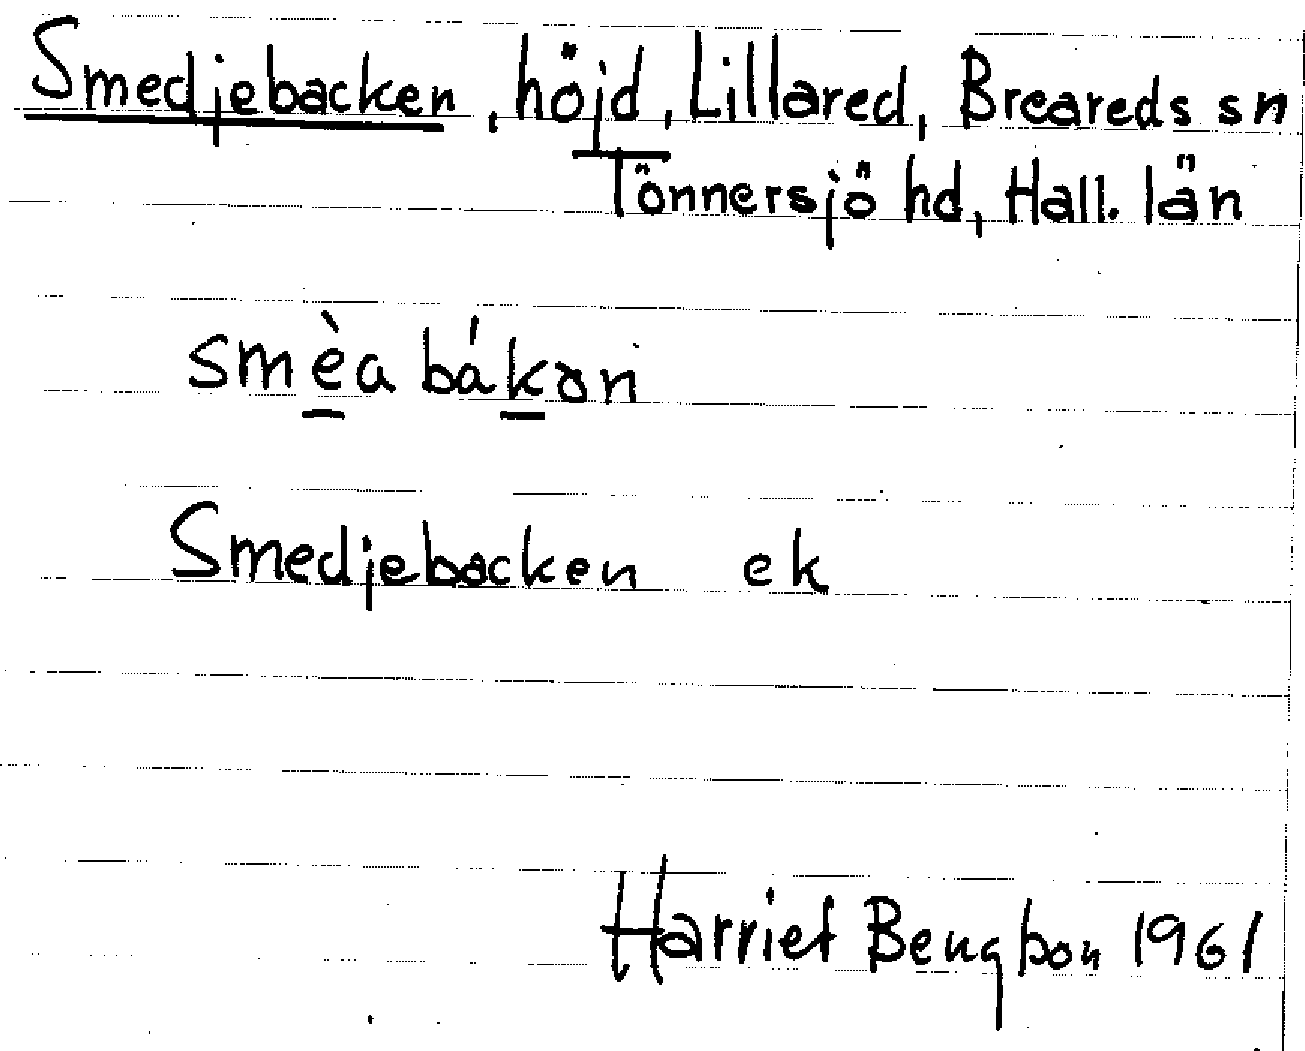 Smedjebacken, höjd, Lillared, Breareds sn
Tönnersjö hd, Hall. län
smèa bákən
Smedjebacken ek
Harriet Bengtson 1961